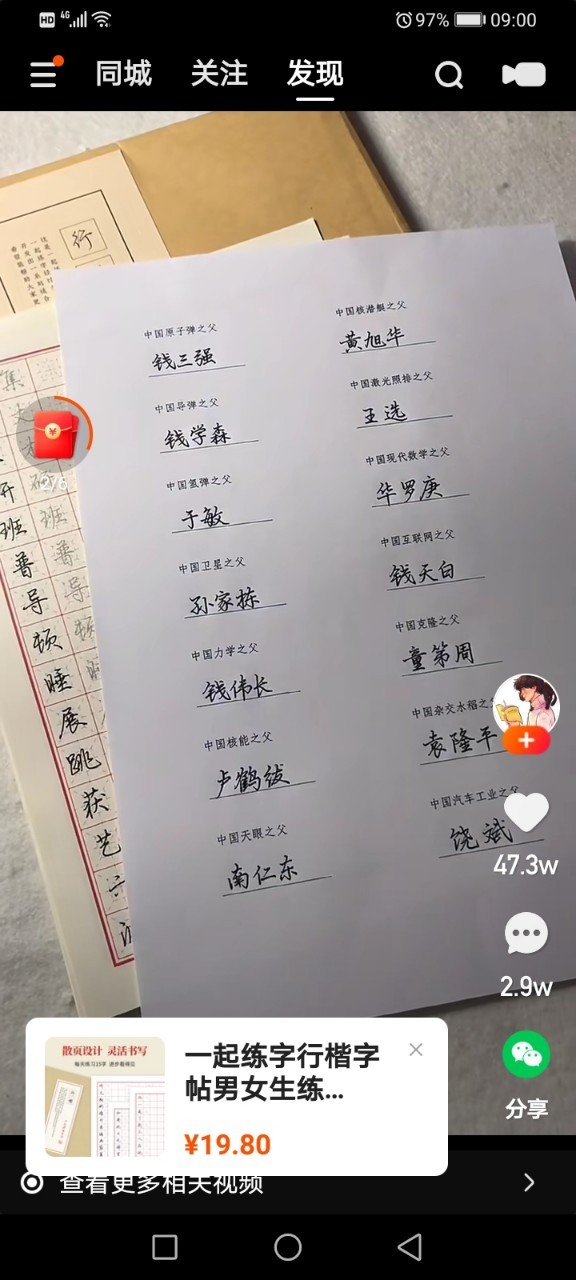 HD 4G 97% 09:00
同城 关注 发现
行
中国原子弹之父
钱三强
中国导弹之父
钱学森
中国氢弹之父
于敏
中国卫星之父
孙家栋
中国力学之父
钱伟长
中国核能之父
卢鹤绂
中国天眼之父
南仁东
中国核潜艇之父
黄旭华
中国激光照排之父
王选
中国现代数学之父
华罗庚
中国互联网之父
钱天白
中国克隆之父
童第周
中国杂交水稻之
袁隆平
中国汽车工业之父
饶斌
集
开
班
班
普
普
导
导
顿
顿
睡
展
跳
获
艺
六
2/6
47.3w
2.9w
分享
散页设计 灵活书写
每天练习15字 进步看得见
一起练字行楷字
帖男女生练...
¥19.80
查看更多相关视频